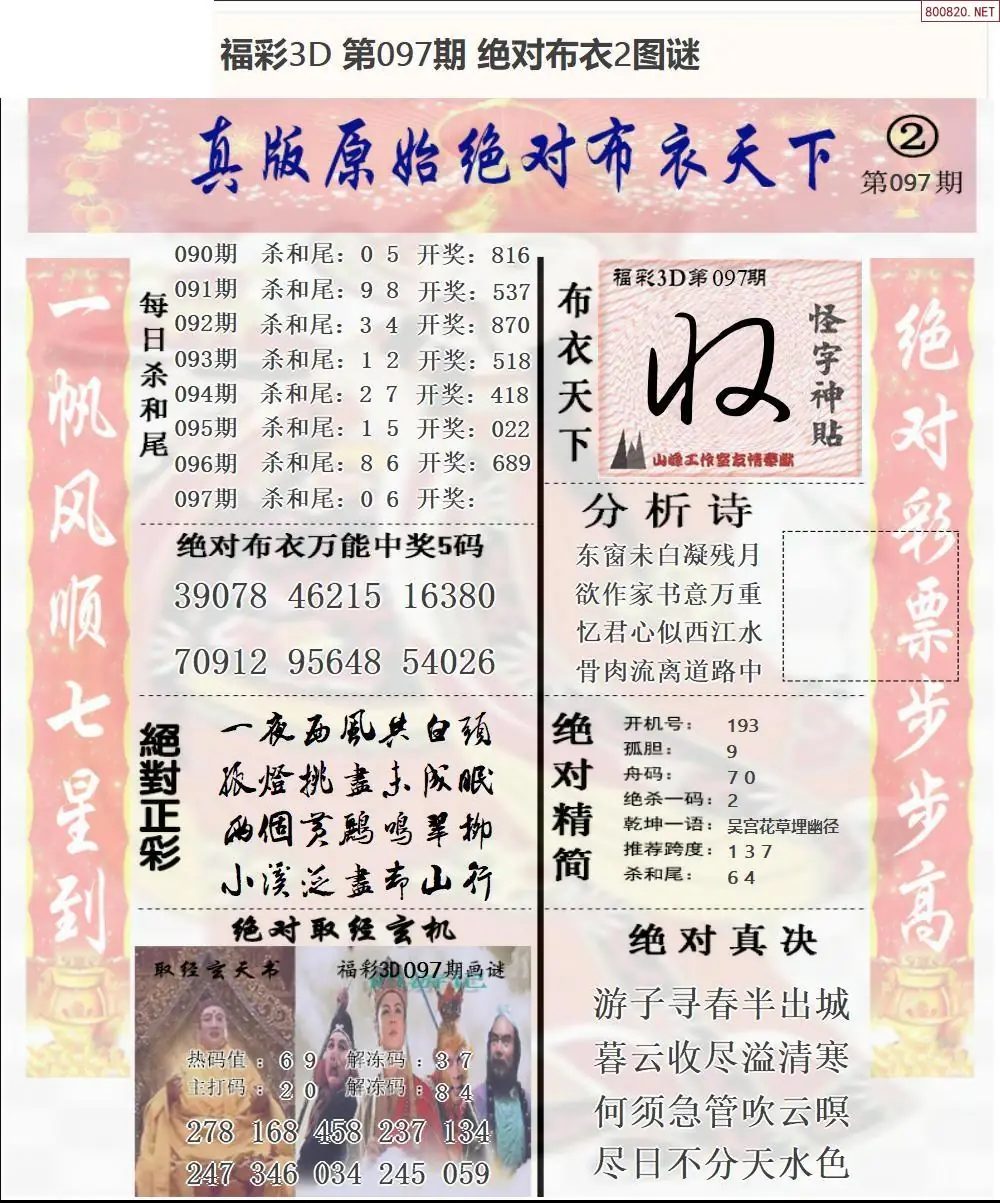 800820.NET
福彩3D 第097期 绝对布衣2图谜
真版原始绝对布衣天下
②
第097期
一帆风顺七星到
每日杀和尾
090期 杀和尾：0 5 开奖：816
091期 杀和尾：9 8 开奖：537
092期 杀和尾：3 4 开奖：870
093期 杀和尾：1 2 开奖：518
094期 杀和尾：2 7 开奖：418
095期 杀和尾：1 5 开奖：022
096期 杀和尾：8 6 开奖：689
097期 杀和尾：0 6 开奖：
布衣天下
福彩3D第097期
怪字神貼
山峰工作室友情奉献
绝对彩票步步高
绝对布衣万能中奖5码
39078 46215 16380
70912 95648 54026
分析诗
东窗未白凝残月
欲作家书意万重
忆君心似西江水
骨肉流离道路中
絕對正彩
一夜西風共白頭
孤燈挑盡未成眠
兩個黃鸝鸣翠柳
小溪泛盡却山行
绝对精简
开机号： 193
孤胆： 9
舟码： 7 0
绝杀一码：2
乾坤一语：吴宫花草埋幽径
推荐跨度：1 3 7
杀和尾： 6 4
绝对取经玄机
取经玄天书
福彩3D097期画谜
热码值：6 9 解冻码：3 7
主打码：2 0 解冻码：8 4
278 168 458 237 134
247 346 034 245 059
绝对真决
游子寻春半出城
暮云收尽溢清寒
何须急管吹云暝
尽日不分天水色